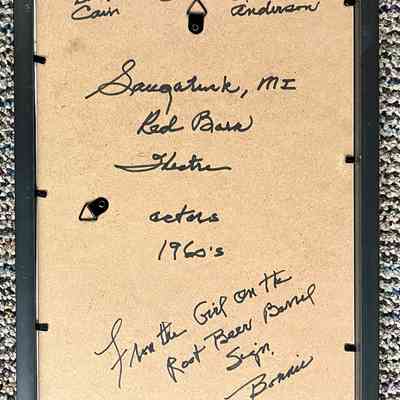 Cain Anderson
Saugatuck, MI
Red Barn
Theatre
actors
1960's
From the Girl on the
Root Beer Barrel
Sign.
Bonnie